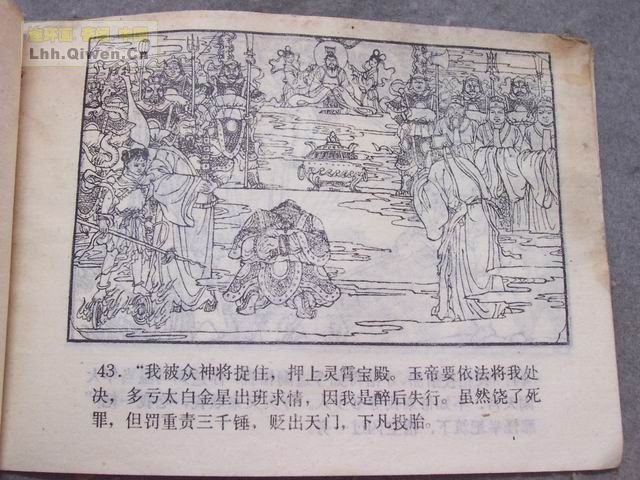 连环画 看网 中国
Lhh.Qiwen.Cn
43．“我被众神将捉住，押上灵霄宝殿。玉帝要依法将我处
决，多亏太白金星出班求情，因我是醉后失行。虽然饶了死
罪，但罚重责三千锤，贬出天门，下凡投胎。